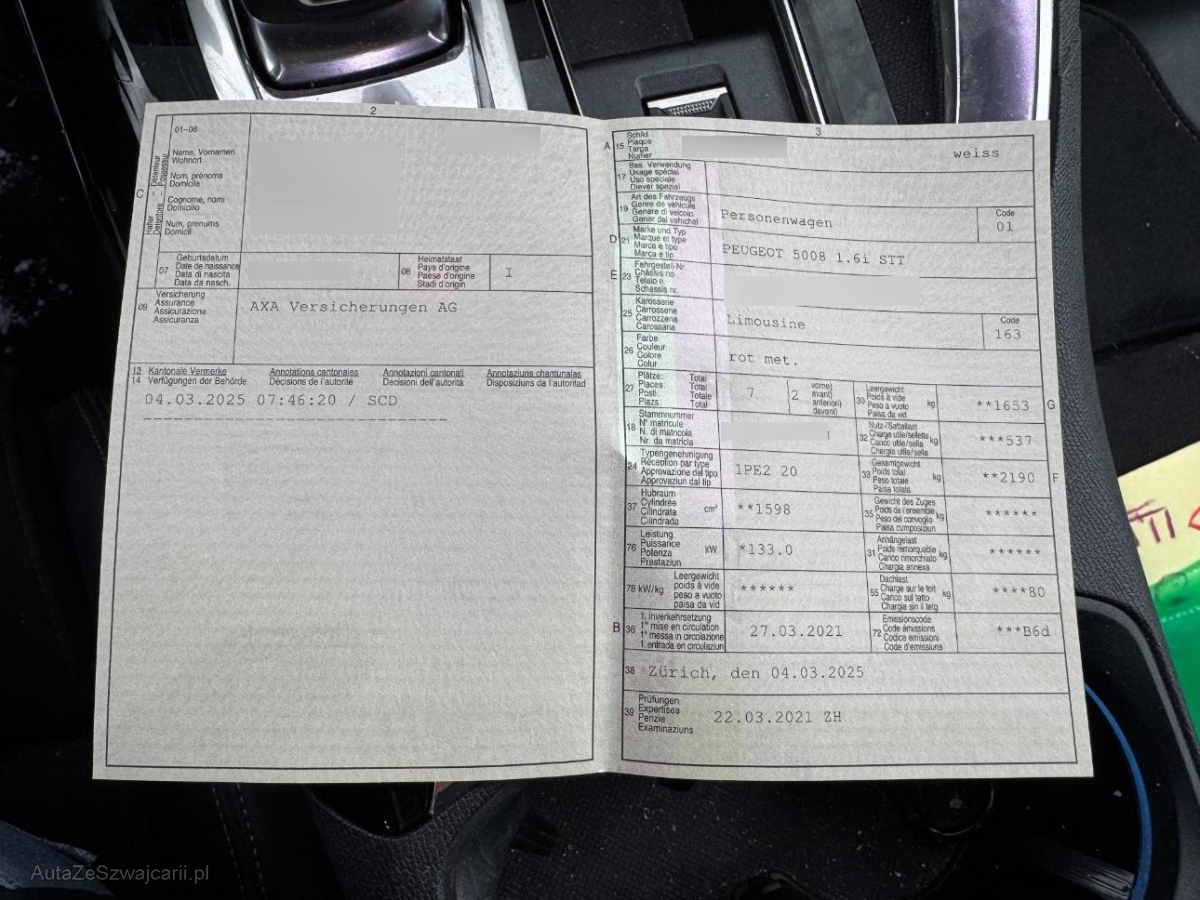 2
01-06
C
Halter Détenteur
Detentore Possessur
Name, Vornamen
Wohnort
Nom, prénoms
Domicile
Cognome, nomi
Domicilio
Num, prenums
Domicil
07
Geburtsdatum
Date de naissance
Data di nascita
Data da nasch.
08
Heimatstaat
Pays d'origine
Paese d'origine
Stadi d'origin
I
09
Versicherung
Assurance
Assicurazione
Assicuranza
AXA Versicherungen AG
13 Kantonale Vermerke Annotations cantonales Annotazioni cantonali Annotaziuns chantunalas
14 Verfügungen der Behörde Décisions de l'autorité Decisioni dell'autorità Disposiziuns da l'autoritad
04.03.2025 07:46:20 / SCD
3
A 15
Schild
Plaque
Targa
Numer
weiss
17
Bes. Verwendung
Usage spécial
Uso speciale
Diever spezial
19
Art des Fahrzeugs
Genre de véhicule
Genere di veicolo
Gener dal vehichel
Personenwagen
Code
01
D 21
Marke und Typ
Marque et type
Marca e tipo
Marca e tip
PEUGEOT 5008 1.6i STT
E 23
Fahrgestell-Nr.
Châssis no
Telaio n.
Schassis nr.
25
Karosserie
Carrosserie
Carrozzeria
Carossaria
Limousine
Code
163
26
Farbe
Couleur
Colore
Colur
rot met.
27
Plätze: Total
Places: Total
Posti: Totale
Plazs: Total
7
2
vorne)
avant)
anteriori)
davant)
30
Leergewicht
Poids à vide
Peso a vuoto
Paisa da vid
kg
**1653
G
18
Stammnummer
N° matricule
N. di matricola
Nr. da matricla
32
Nutz-/Sattellast
Charge utile/sellette
Carico utile/sella
Chargia utila/sella
kg
***537
24
Typengenehmigung
Réception par type
Approvazione del tipo
Approvaziun dal tip
1PE2 20
33
Gesamtgewicht
Poids total
Peso totale
Paisa totala
kg
**2190
F
37
Hubraum
Cylindrée
Cilindrata
Cilindrada
cm³
**1598
35
Gewicht des Zuges
Poids de l'ensemble
Peso del convoglio
Paisa cumposiziun
kg
******
76
Leistung
Puissance
Potenza
Prestaziun
kW
*133.0
31
Anhängelast
Poids remorquable
Carico rimorchiato
Chargia annexa
kg
******
78 kW/kg
Leergewicht
poids à vide
peso a vuoto
paisa da vid
******
55
Dachlast
Charge sur le toit
Carico sul tetto
Chargia sin il tetg
kg
****80
B 36
1. Inverkehrsetzung
1re mise en circulation
1a messa in circolazione
1. entrada en circulaziun
27.03.2021
72
Emissionscode
Code émissions
Codice emissioni
Code d'emissiuns
***B6d
38 Zürich, den 04.03.2025
39
Prüfungen
Expertises
Perizie
Examinaziuns
22.03.2021 ZH
AutaZeSzwajcarii.pl